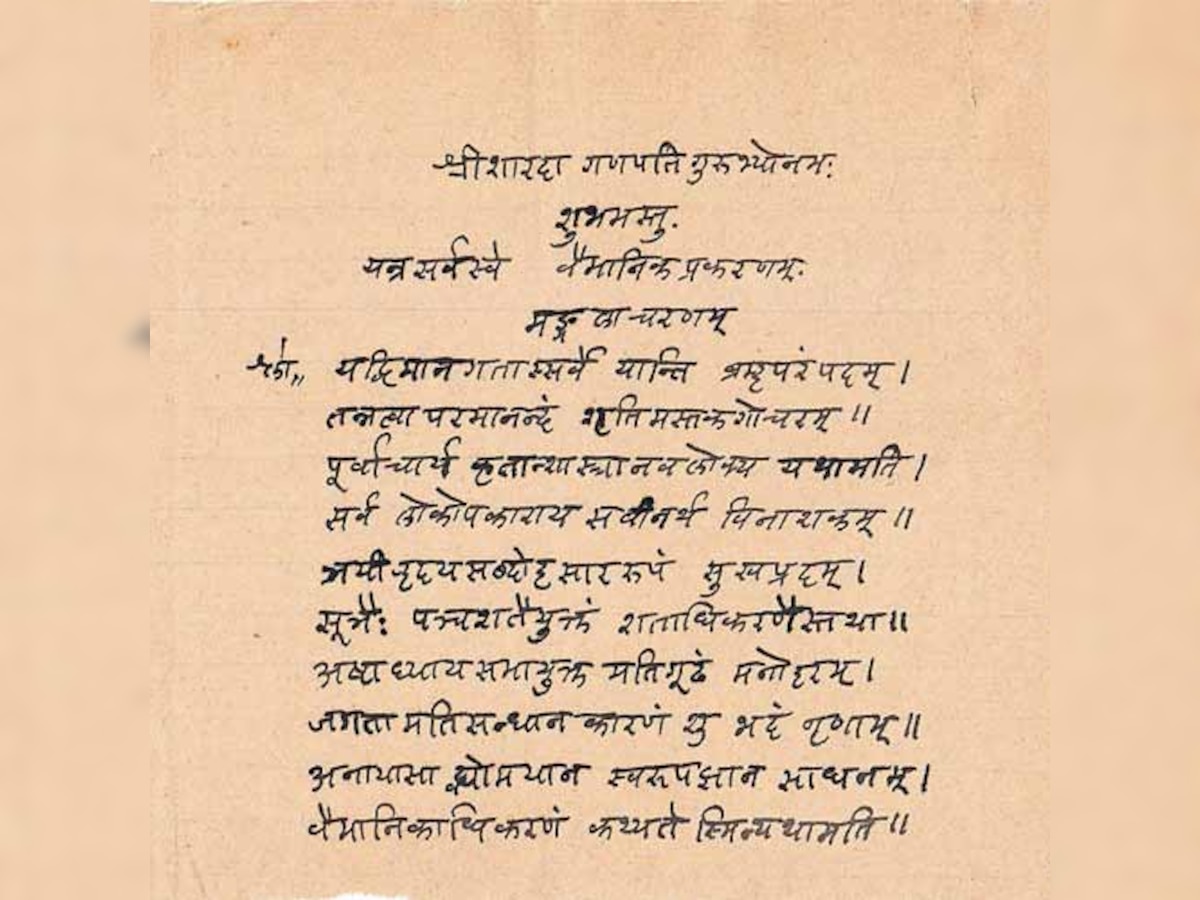 श्रीशारदा गणपति गुरुभ्योनमः
शुभमस्तु.
यन्त्रसर्वस्वे वैमानिकप्रकरणम्.
मङ्गलाचरणम्
श्लो,, यद्विमानगतास्सर्वे यान्ति ब्रह्मपरंपदम् ।
तन्नत्वा परमानन्दं श्रुतिमस्तकगोचरम् ॥
पूर्वाचार्य कृतान्शास्त्रानवलोक्य यथामति ।
सर्व लोकोपकाराय सर्वानर्थ विनाशकम् ॥
त्रयीहृदयसन्दोहसाररूपं सुखप्रदम् ।
सूत्रैः पञ्चशतैयुक्तं शताधिकरणैस्तथा ॥
अष्टाध्यायसमायुक्त मतिगूढं मनोहरम् ।
जगतामतिसन्धानकारणं शुभदं नृणाम् ॥
अनायासाद्व्योमयान स्वरूपज्ञान साधनम् ।
वैमानिकाधिकरणं कथ्यतेस्मिन्यथामति ॥